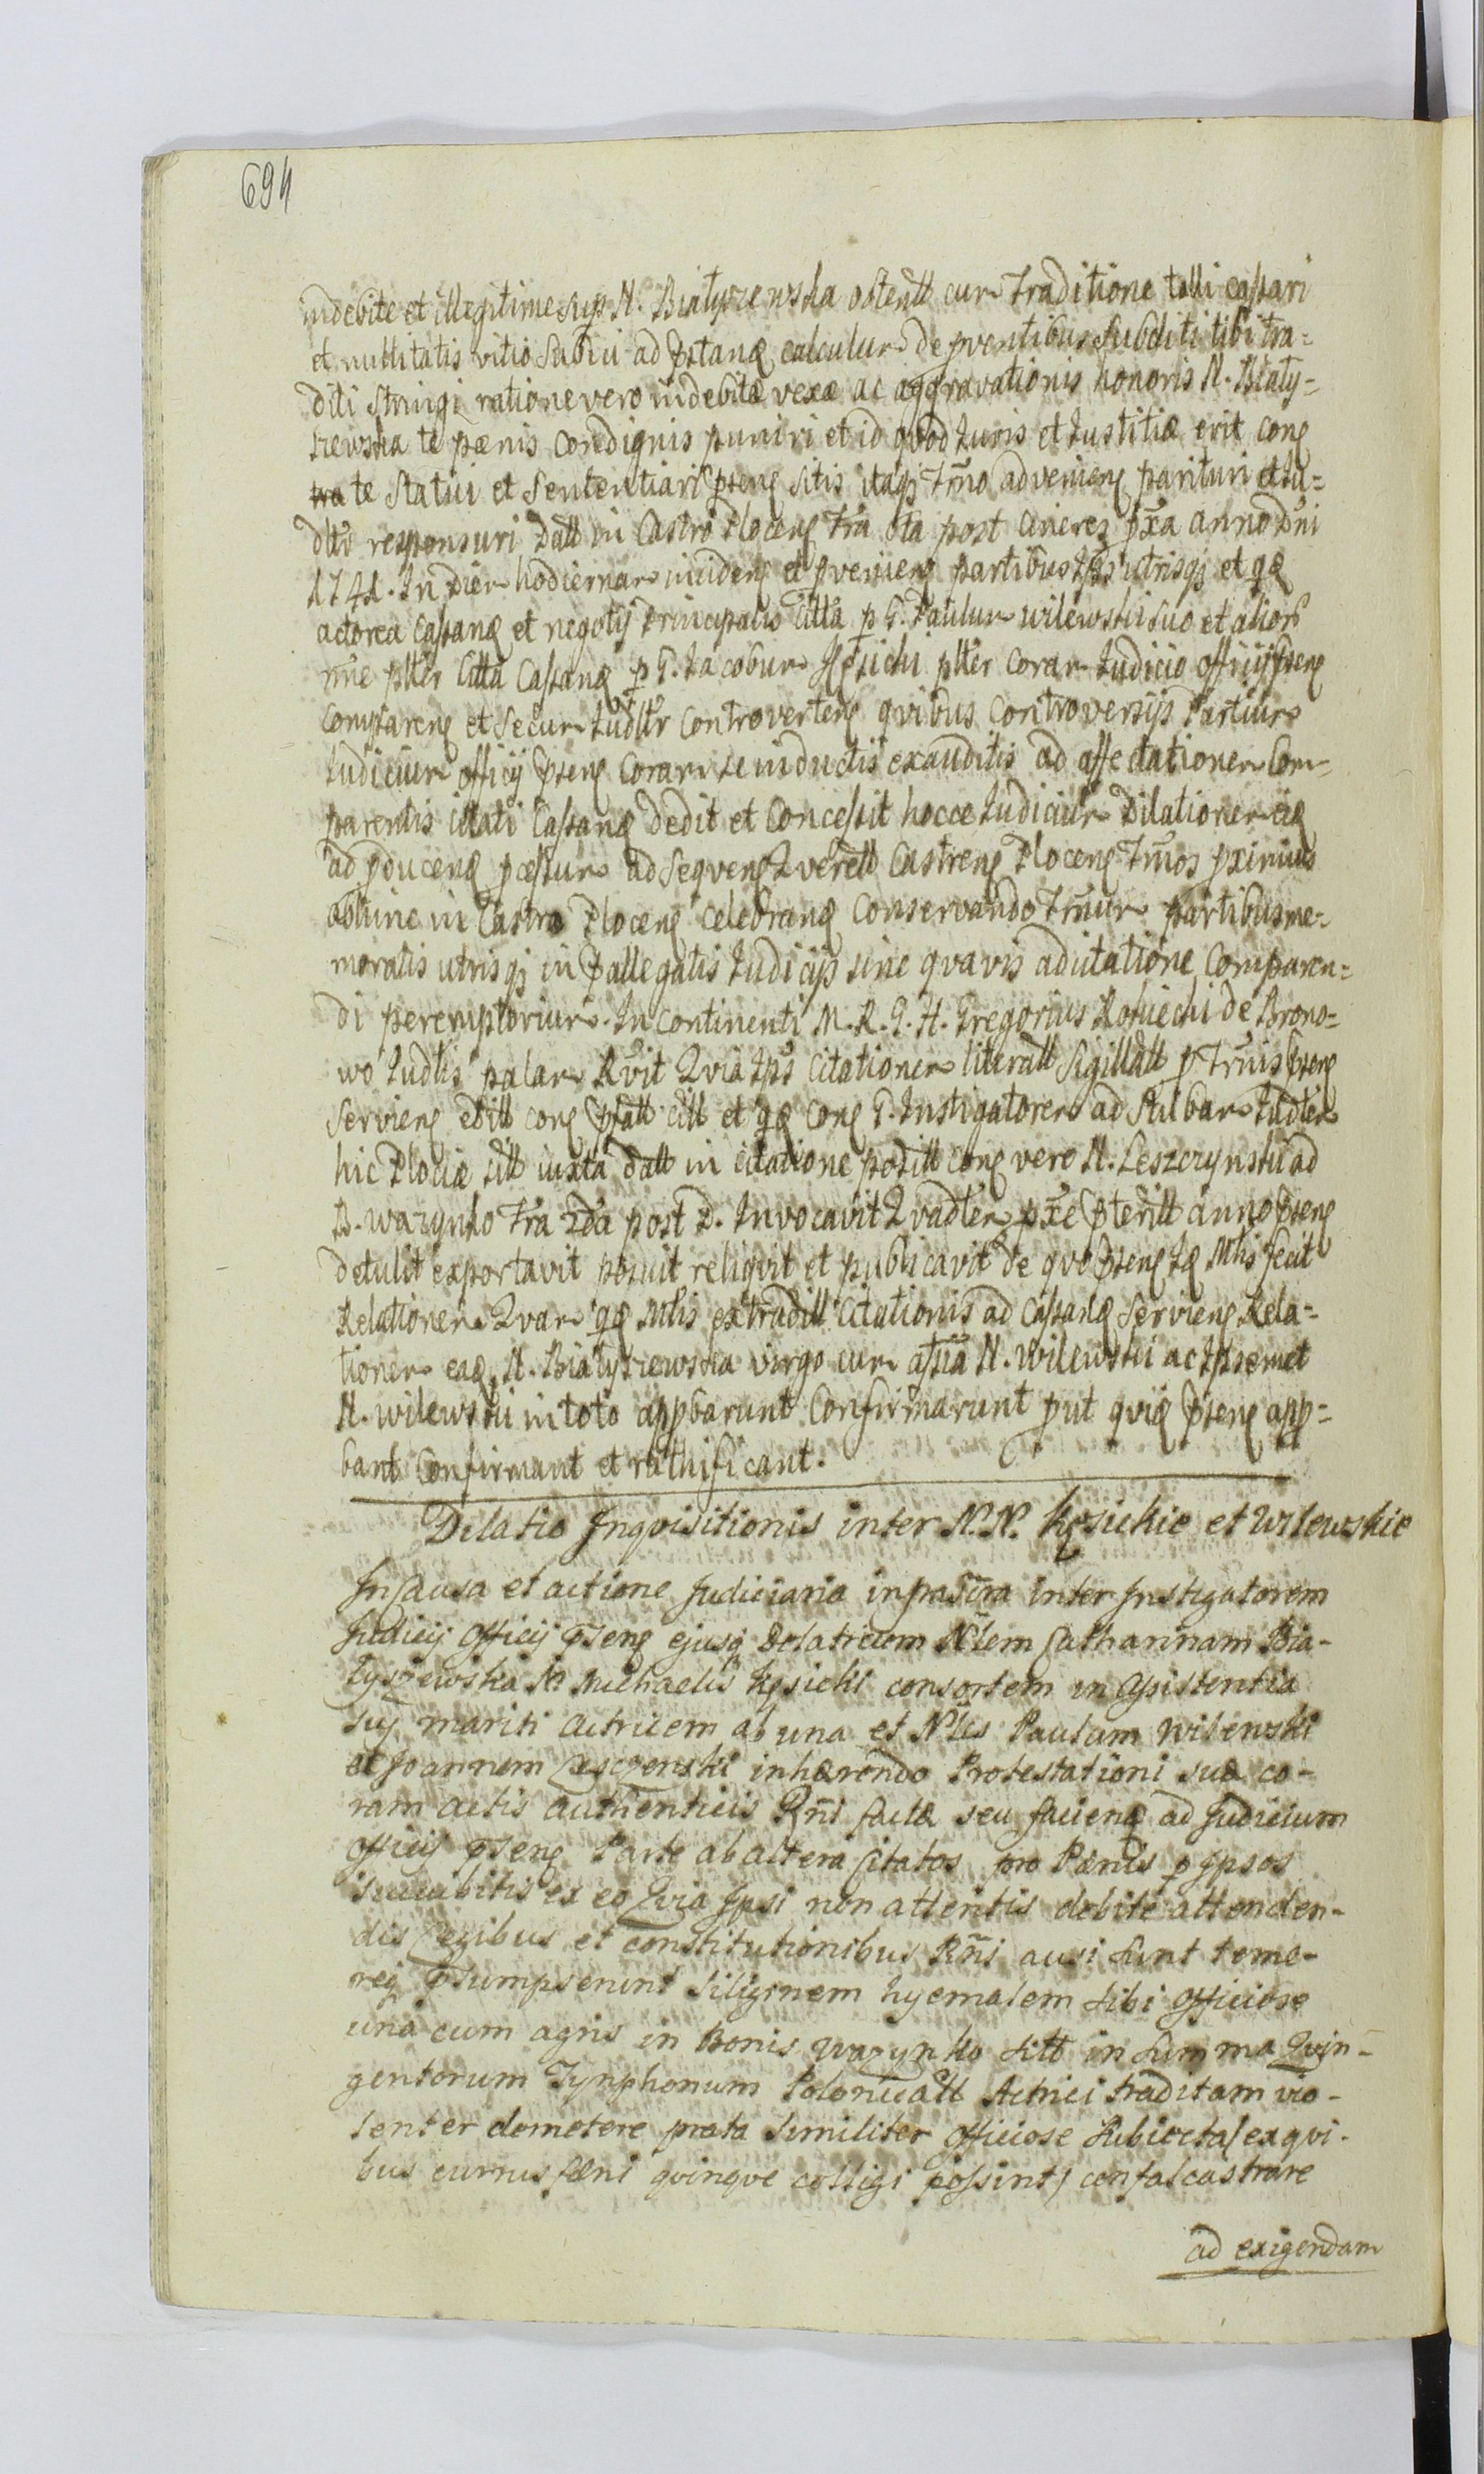 694
indebite et illegitime sup N. Białyszewska obtentt cum traditione tolli cassari
et nullitatis vitio subiici ad pstanđ calculum de pventibus subditi tibi tra=
diti stringi ratione vero indebitæ vexæ ac aggravationis honoris N. Biały=
szewska te pænis condignis puniri et id qvod Iuris et Iustitiæ erit conŧ
te Statui et Sententiari pseñ sitis itaqȝ Tmo advenieñ parituri et Iu=
dltr responsuri Datt in Castro Ploceñ Fra 6ta post Cineres pxa anno Dni
1741. In Diem hodiernam incideñ et pvenieñ partibus Ips utrisqȝ et qđ
actorea Cassanđ et negotij Principalis citta p G. Paulum Wilewski suo et alior
nne plter Citta Cassanđ p G. Iacobum plter coram Iudicio officij pseñ
Compareñ et Secum Iudltr Controverteñ qvibus Controversijs Partium
Iudicium officij pseñ Coram se inductis exauditis ad affectationem Com=
parentis citati Cassanđ dedit et Concessit hocce Iudicium Dilationem eađ
ad pducenđ pcessum ad Seqveñ Qverell Castreñ Ploceñ Tmos pximius
abhinc in Castro Ploceñ Celebranđ Conservando Tmum partibus me=
moratis utrisqȝ in pallegatis Iudicijs sine qvavis adcitatione Comparen=
di peremptorium. In continenti M. R. G. H. Gregorius Rokicki de Brono=
wo Iudlis palam Rvit Qvia Ips Citationem literatt Sigillatt p Tmis pseñ
Servieñ edit conŧ pfatt citt et qđ conŧ G. Instigatorem ad Stubam Iudlem
hic Plociæ sitt iuxta datt in citatione positt conŧ vero N. Leszczynski ad
B. Wazynko Fra 2da post D. Invocavit Qvadlem pxe pteritt anno pseñ
detulit exportavit posuit reliqvit et publicavit de qvo pseñ Iđ Mlis fecit
Relationem Qvam qđ Mlis extraditt Citationis ad Cassanđ Servieñ Rela=
tionem eađ N. Białyszewska virgo cum astia N. Wilewski ac Ipsemet
N. Wilewski in toto appbarunt Confirmarunt put qviđ pseñ app=
bant Confirmant et rathificant.
Dilatio Inqvisitionis inter N.N. Kęsickie et Wilewskie
In Causa et actione Iudiciaria infrascra inter Instigatorem
Iudicij Officij pseñ ejusqȝ Delatricem Nlem Catharinam Bia-
łyszewska N. Michaelis Kęsicki consortem in Assistentia
suj mariti Actricem ab una et Nles Paulum Wilewski
et Joannem Leszczenski inhærendo Protestationi suæ co-
ram Actis authenticis Rni factæ seu facienđ ad Judicium
Officij pseñ Parte ab altera Citatos pro Pænis p Ipsos
succubitis ex eo Qvia Ipsi non attentis debite attenden-
dis Legibus et constitutionibus Rni ausi sunt teme-
reqȝ psumpserunt Siliginem hyemalem sibi Officiose
una cum agris in Bonis Wazynko sitt in Summa Qvin-
gentorum Tynphonum Polonicatt Actrici traditam vio-
lenter demetere prata similiter Officiose subiecta (ex qvi-
bus currus fæni qvinqve colligi possint) confalcastrare
ad exigendam